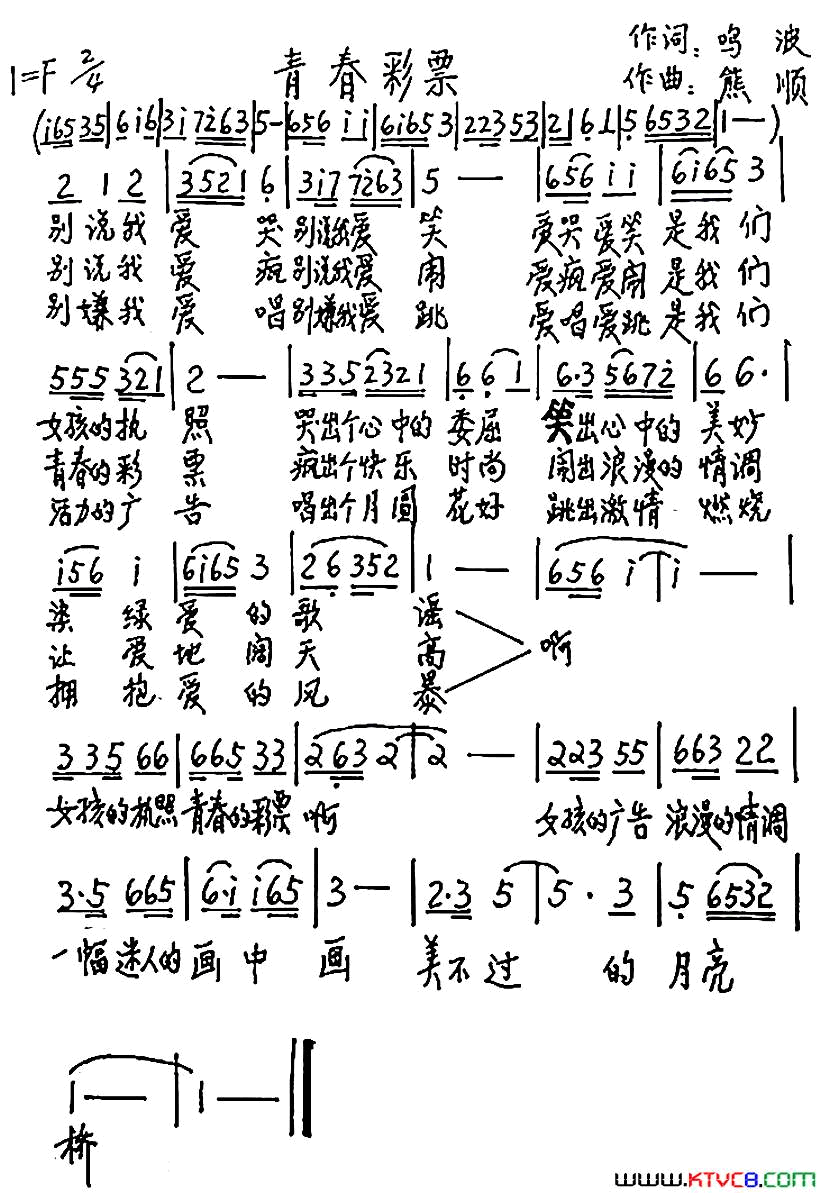 作词：鸣波
1=F 2/4 青春彩票
作曲：熊顺
(i65 35|6 i6|3i 7263|5-|656 ii|6i65 3|2235 3|21 61|5 6532|1—)
2 1 2|3521 6|3i7 7i63|5 —|656 ii|6i65 3|
别说我爱 哭别说我爱 笑 爱哭爱笑是我们
别说我爱 疯别说我爱 闹 爱疯爱闹是我们
别嫌我爱 唱别嫌我爱 跳 爱唱爱跳是我们
555 321|2 —|335 2321|6 6 1|6·3 567i|6 6·|
女孩的执 照 哭出个心中的 委屈 笑出心中的 美妙
青春的彩 票 疯出个快乐 时尚 闹出浪漫的 情调
活力的广 告 唱出个月圆 花好 跳出激情 燃烧
i56 i|6i65 3|26 352|1 —|656 i|i —|
染绿爱的歌 谣
让爱地阔天 高 啊
拥抱爱的风 暴
335 66|665 33|263 2|2 —|223 55|663 22|
女孩的执照 青春的彩票 啊 女孩的广告 浪漫的情调
3·5 665|6·i i65|3—|2·3 5|5· 3|5 6532|
一幅迷人的画中 画 美不过 的 月亮
1—|1—‖
桥
www.KTVC8.com